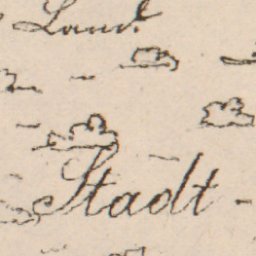 Land.
Stadt -